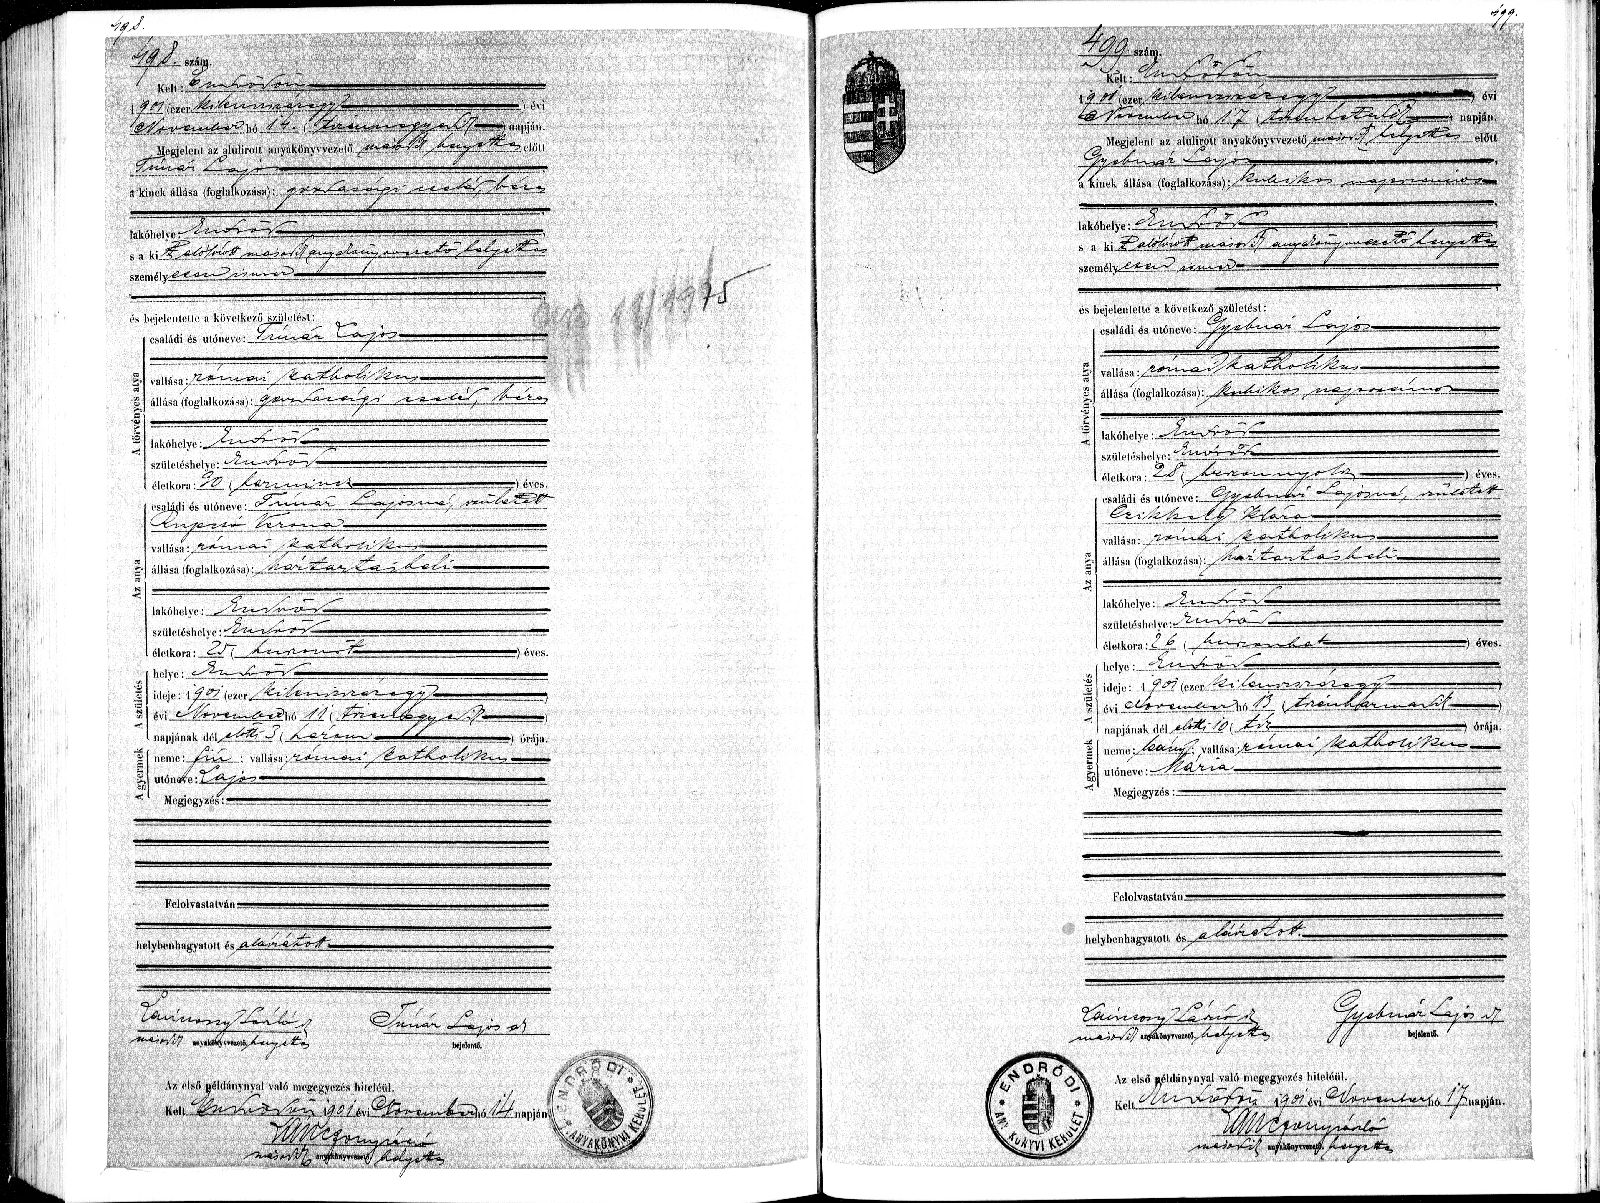 498.
498. szám.
Kelt: Endrődön
1901 (ezer kilenczszázegy) évi
November hó 14. (tizennegyedik) napján.
Megjelent az alulirott anyakönyvvezető másodh helyettes előtt
Timár Lajos
a kinek állása (foglalkozása): gazdasági cseléd, béres
lakóhelye: Endrőd
s a kit alólírott másodh anyakönyvvezető helyettes
személyesen ismer
és bejelentette a következő születést:
A törvényes atya
családi és utóneve: Timár Lajos
vallása: római katholikus
állása (foglalkozása): gazdasági cseléd, béres
lakóhelye: Endrőd
születéshelye: Endrőd
életkora: 30 (harmincz) éves.
Az anya
családi és utóneve: Timár Lajosné, született
Verona
vallása: római katholikus
állása (foglalkozása): háztartásbeli
lakóhelye: Endrőd
születéshelye: Endrőd
életkora: 25 (huszonöt) éves.
A születés
helye: Endrőd
ideje: 1901 (ezer kilenczszázegy)
évi November hó 11 (tizenegyedik)
napjának dél előtti 3 (három) órája.
A gyermek
neme: fiú; vallása: római katholikus
utóneve: Lajos
Megjegyzés:
Felolvastatván
helybenhagyatott és aláiratott.
László
másodh anyakönyvvezető helyettes
Timár Lajos
bejelentő.
Az első példánynyal való megegyezés hiteléül.
Kelt Endrődön 1901 évi November hó 14 napján
másodh anyakönyvvezető helyettes
ENDRŐDI ANYAKÖNYVI KERÜLET
499.
499 szám.
Kelt: Endrődön
1901 (ezer kilenczszázegy) évi
November hó 17 (tizenhetedik) napján.
Megjelent az alulirott anyakönyvvezető másodh helyettes előtt
Gyebnár Lajos
a kinek állása (foglalkozása): kubikos napszámos
lakóhelye: Endrőd
s a kit alólírott másodh anyakönyvvezető helyettes
személyesen ismer
és bejelentette a következő születést:
A törvényes atya
családi és utóneve: Gyebnár Lajos
vallása: római katholikus
állása (foglalkozása): kubikos napszámos
lakóhelye: Endrőd
születéshelye: Endrőd
életkora: 28 (huszonnyolcz) éves.
Az anya
családi és utóneve: Gyebnár Lajosné, született
Czikkely Klára
vallása: római katholikus
állása (foglalkozása): háztartásbeli
lakóhelye: Endrőd
születéshelye: Endrőd
életkora: 26 (huszonhat) éves.
A születés
helye: Endrőd
ideje: 1901 (ezer kilenczszázegy)
évi November hó 13 (tizenharmadik)
napjának dél előtti 10 (tíz) órája.
A gyermek
neme: leány; vallása: római katholikus
utóneve: Mária
Megjegyzés:
Felolvastatván
helybenhagyatott és aláiratott.
László
másodh anyakönyvvezető helyettes
Gyebnár Lajos
bejelentő.
Az első példánynyal való megegyezés hiteléül.
Kelt Endrődön 1901 évi November hó 17 napján.
másodh anyakönyvvezető helyettes
ENDRŐDI ANYAKÖNYVI KERÜLET